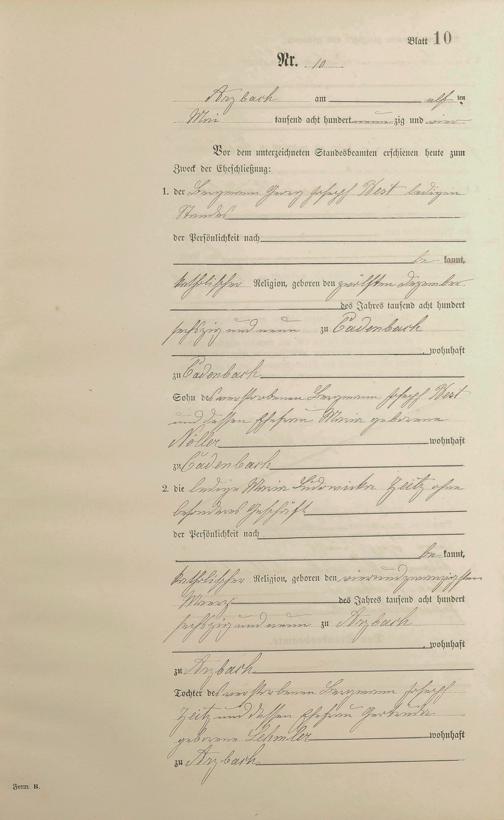 Blatt 10
Nr. 10
Arzbach am elf ten
Mai tausend acht hundert neun zig und vier
Vor dem unterzeichneten Standesbeamten erschienen heute zum
Zweck der Eheschließung:
1. der Bergmann Georg Joseph West ledigen
Standes
der Persönlichkeit nach
be kannt,
katholischer Religion, geboren den zwölften Dezember
des Jahres tausend acht hundert
sechszig und neun zu Cadenbach
, wohnhaft
zu Cadenbach
Sohn des verstorbenen Bergmann Joseph West
und dessen Ehefrau Maria geborene
Nöller wohnhaft
zu Cadenbach
2. die ledige Maria Ludowicka Zeitz ohne
besonderes Geschäft
der Persönlichkeit nach
be kannt,
katholischer Religion, geboren den vierundzwanzigsten
Maerz des Jahres tausend acht hundert
sechszig und neun zu Arzbach
, wohnhaft
zu Arzbach
Tochter des verstorbenen Bergmann Joseph
Zeitz und dessen Ehefrau Gertrude
geborene Lehmler wohnhaft
zu Arzbach
Form. B.